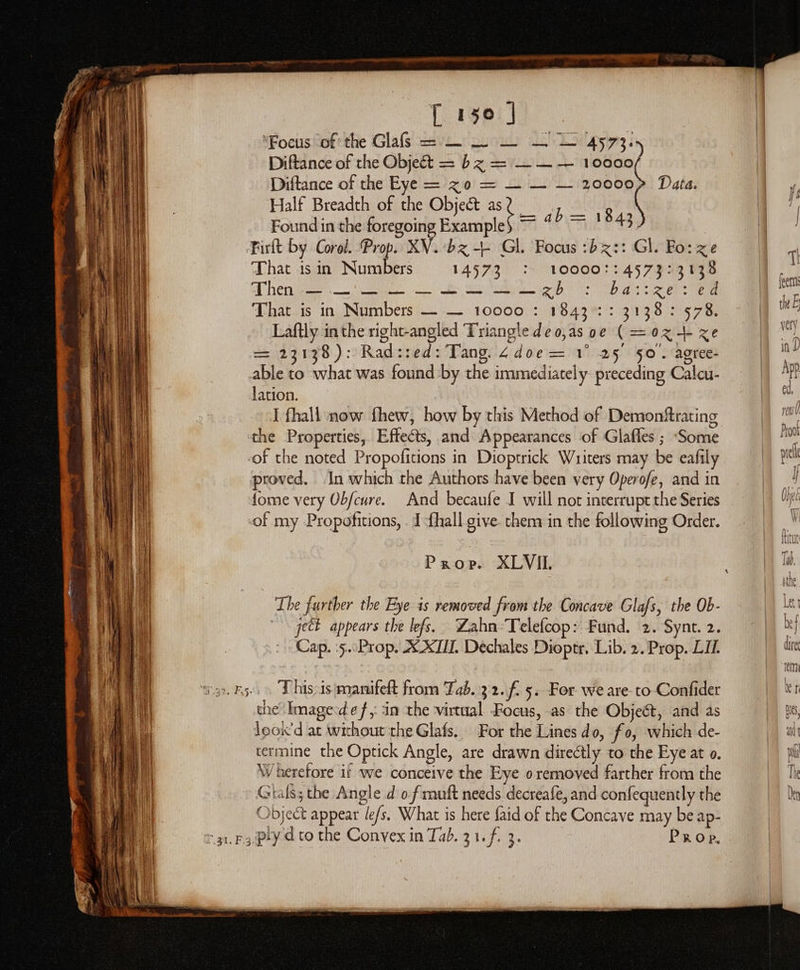 [ 150 ]
Focus of the Glaſs = — — — — — 4573.
Diſtance of the Object = bz = — — — 10000
Diſtance of the Eye = zo = — — — 20000 } Data.
Half Breadth of the Object as
Found in the foregoing Example } = ab = 1843
Firſt by Corol. Prop. XV. bz + Gl. Focus : bz :: Gl. Fo : ze
That is in Numbers 14573 : 10000 :: 4573 : 3138
Then — — — — — — — — — zb : ba :: ze : ed
That is in Numbers — — 10000 : 1843 :: 3138 : 578.
Laſtly in the right-angled Triangle deo, as oe ( = oz + ze
= 23138 ) : Rad :: ed : Tang. ∠ doe = 1° 25′ 50″. agree-
able to what was found by the immediately preceding Calcu-
lation.
I ſhall now ſhew, how by this Method of Demonſtrating
the Properties, Effects, and Appearances of Glaſſes ; Some
of the noted Propoſitions in Dioptrick Writers may be eaſily
proved. In which the Authors have been very Operoſe, and in
ſome very Obſcure. And becauſe I will not interrupt the Series
of my Propoſitions, I ſhall give them in the following Order.
Prop. XLVII.
The further the Eye is removed from the Concave Glaſs, the Ob-
ject appears the leſs. Zahn Teleſcop: Fund. 2. Synt. 2.
Cap. 5. Prop. XXIII. Dechales Dioptr. Lib. 2. Prop. LII.
T.32. F.5. This is manifeſt from Tab. 32. f. 5. For we are to Conſider
the Image def, in the virtual Focus, as the Object, and as
look'd at without the Glaſs. For the Lines do, fo, which de-
termine the Optick Angle, are drawn directly to the Eye at o.
Wherefore if we conceive the Eye o removed farther from the
Glaſs; the Angle d o f muſt needs decreaſe, and conſequently the
Object appear leſs. What is here ſaid of the Concave may be ap-
T.31. F.3. ply'd to the Convex in Tab. 31. f. 3.
Prop.